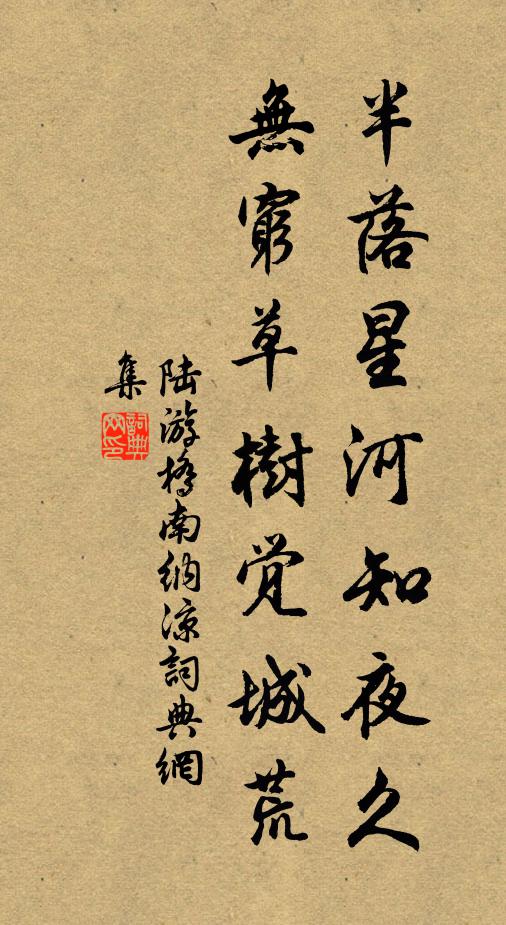 半落星河知夜久
無窮草樹觉城荒
陆游橋南納涼詞典網
集
詞典網印